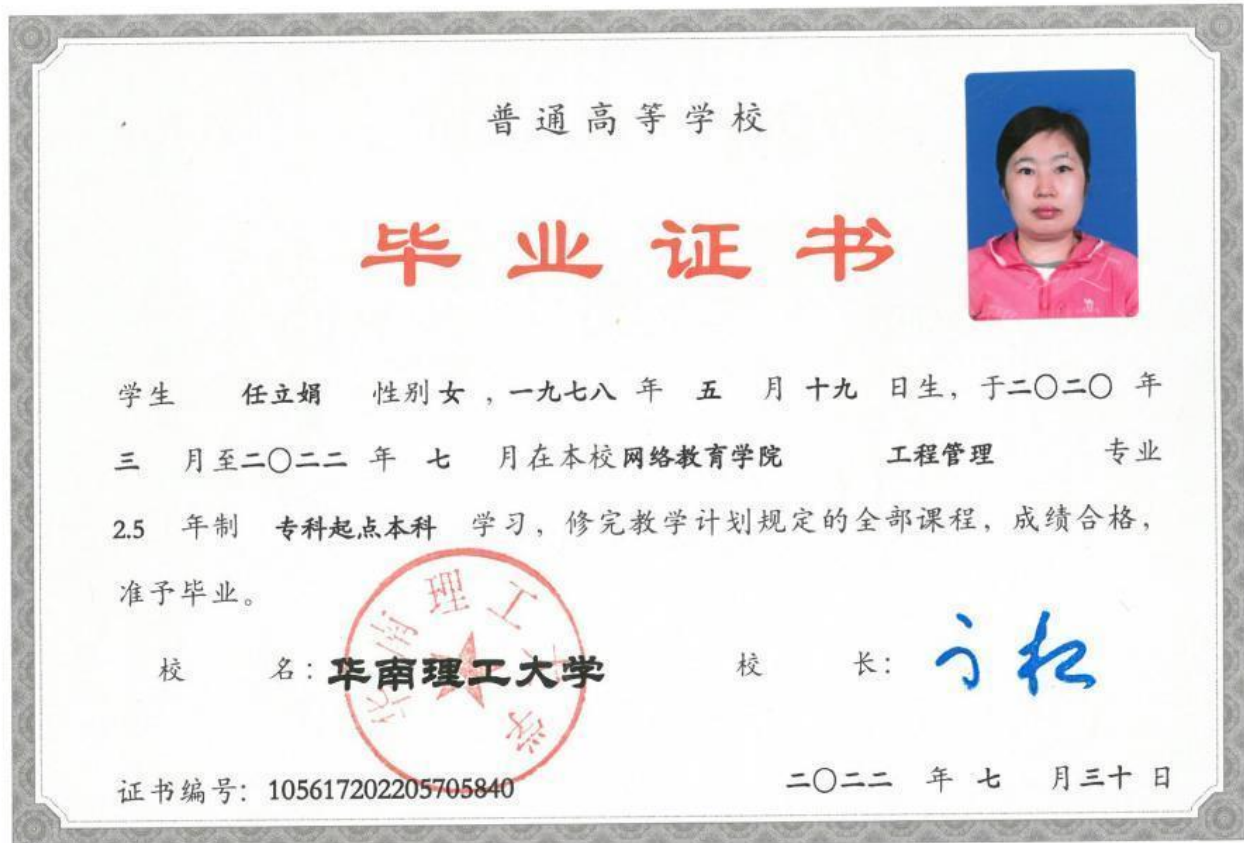 普通高等学校
毕业证书
学生 任立娟 性别女，一九七八年五月十九日生，于二〇二〇年
三月至二〇二二年七月在本校网络教育学院 工程管理 专业
2.5 年制 专科起点本科 学习，修完教学计划规定的全部课程，成绩合格，
准予毕业。
华南理工大学
校 名：华南理工大学 校 长：
证书编号：105617202205705840 二〇二二年七月三十日